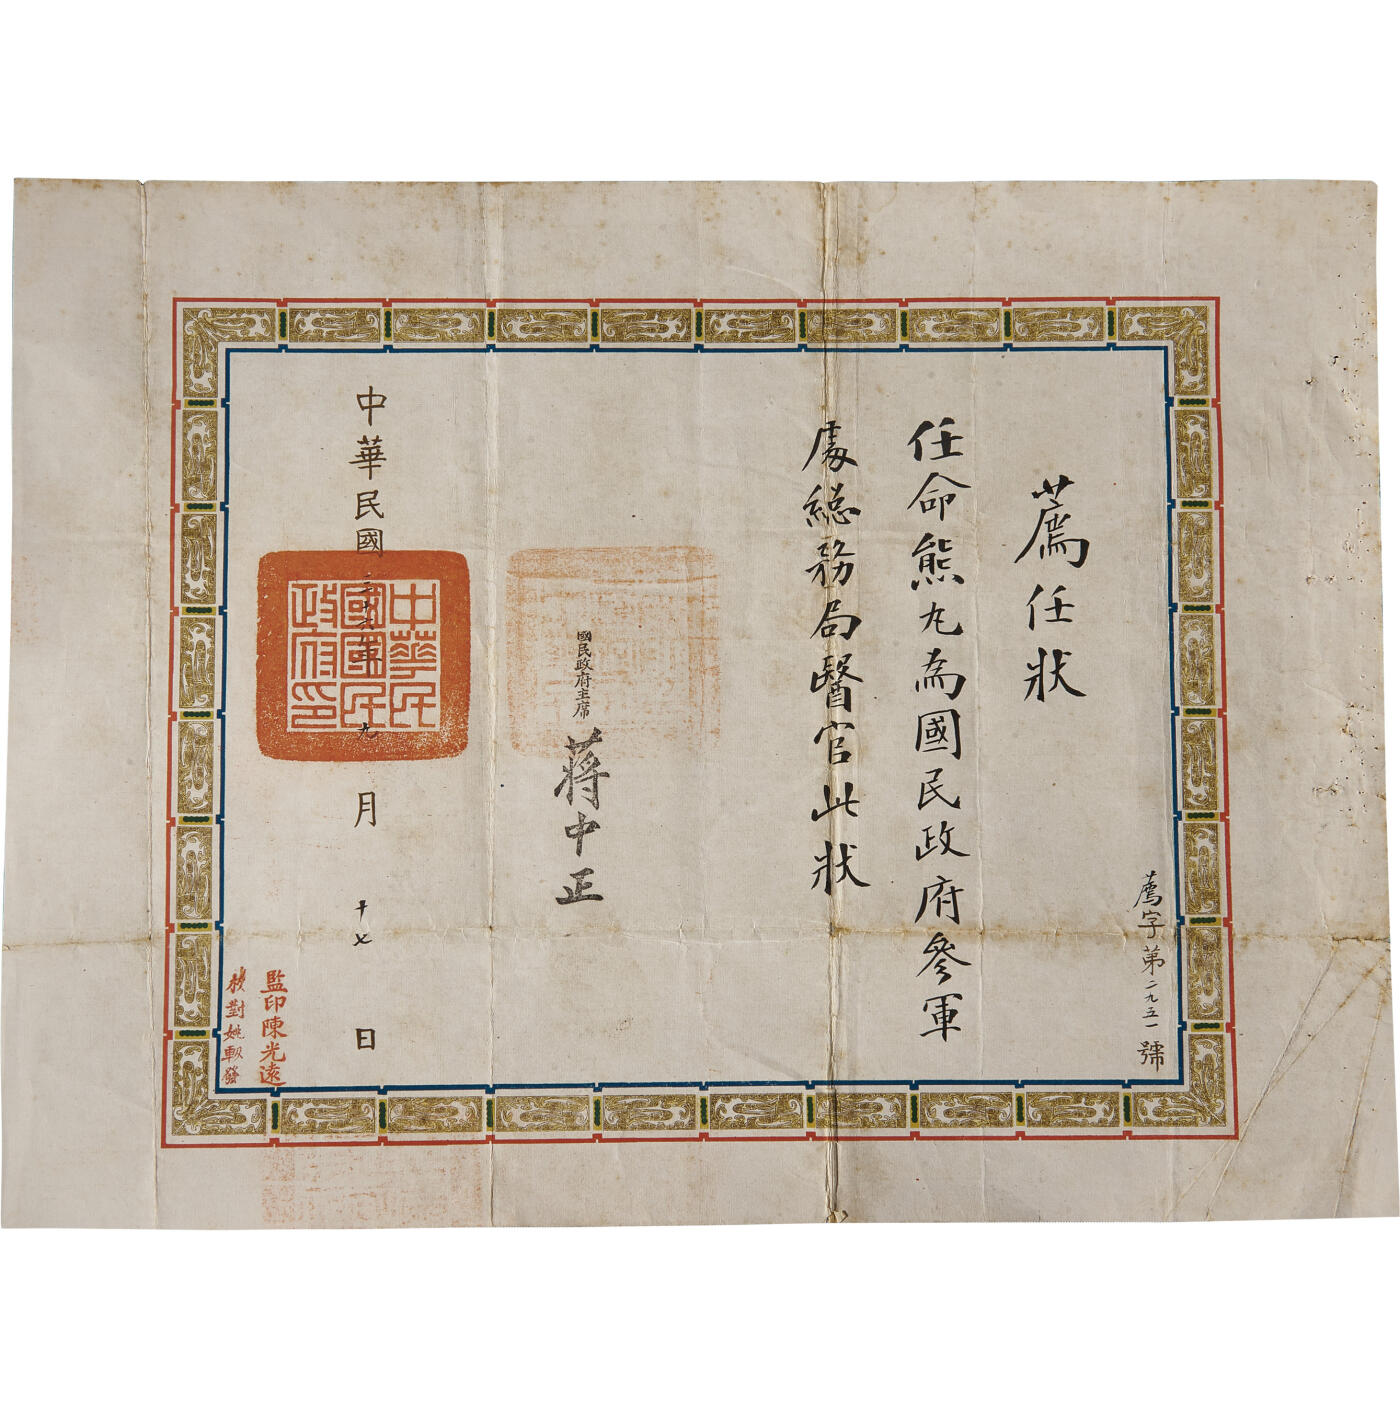 薦字第二九五一號
薦任狀
任命熊丸為國民政府參軍
處總務局醫官此狀
國民政府主席
蔣中正
中華民國三十六年九月十七日
中華民
國國民
政府印
監印陳光遠
校對姚發